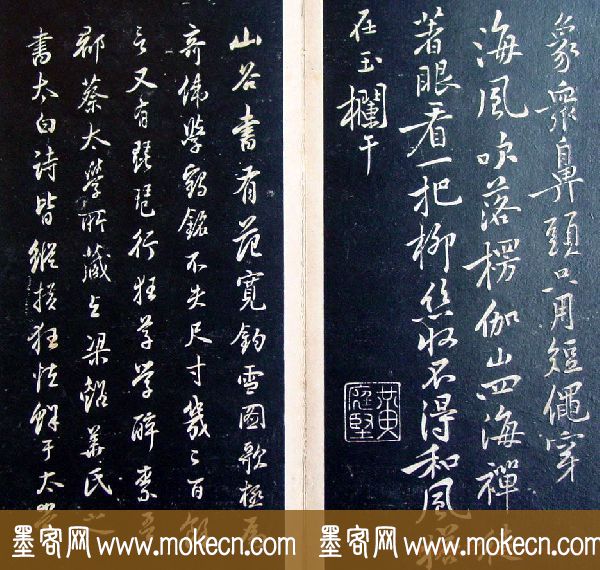 象眾鼻頭只用短繩穿
海風吹落楞伽山四海禪
著眼看一把柳絲收不得和風搭
在玉欄干
黃庭堅
山谷書有范寬釣雪圖歌極
奇偉學鶴銘不失尺寸幾二百
言又有琵琶行狂草學醉素
郡蔡太學所藏之梁谿華氏
書太白詩皆縱橫狂怪鮮于太
墨客网 www.mokecn.com
墨客网 www.mokecn.com